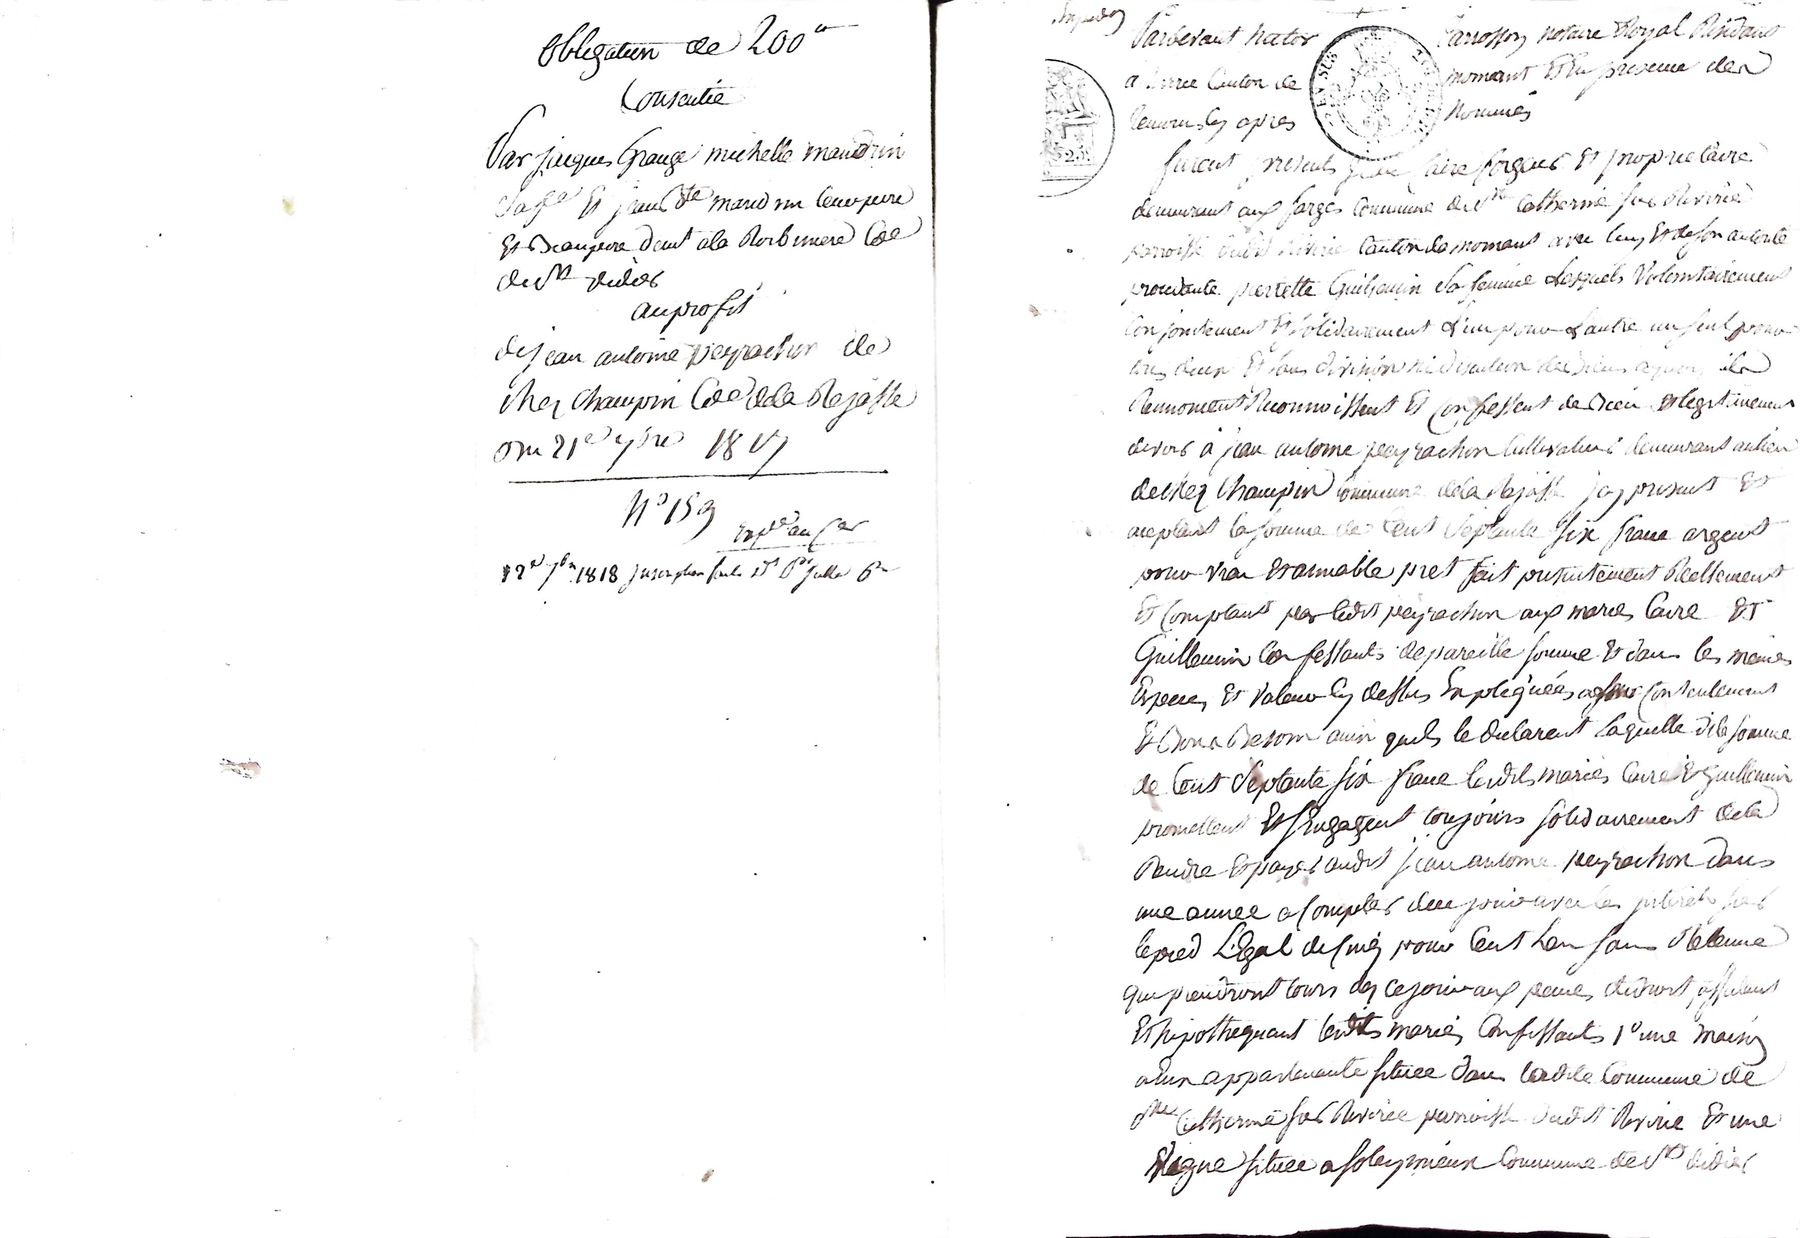 obligation de 200 ₶
Consentie
Par jacques Grange michelle mandrin
sa fe Et jean Bte mandrin beaupere
Et Beaupere dmt a la Robiniere Cne
de St didier
au profit
de jean antoine peyrachon de
chez Champin Cne de la Rajasse
du 21e 9bre 1817
N° 159
Expe au Cer
12e 7bre 1818 Inscription
Expedion
Pardevant hector Carrosson notaire Royal Résidant
a Canton de mornant Et En presence des
temoins cy apres Nommés
furent presents Caire forgeur Et proprietaire
demeurant aux farges Commune de Ste Catherine sur Riviríe
parroisse dudit Rivirie Canton de mornant avec luy Et de son autorité
procédante pierrette Guillemin sa femme Lesquels Volontairement
Conjointement Et solidairement L'un pour Lautre un seul pour
tous deux Et sans division ni discution de biens a quoy ils
Renoncent Reconnoissent Et Confessent de bien Et legitimement
devoir à jean antoine peyrachon Cultivateur demeurant au lieu
de chez Champin Commune de la Rajasse jcy present Et
acceptant la somme de Cent septante six franc argent
pour vrai Et amiable pret fait presentement Réellement
Et Comptant par ledit peyrachon aux mariés Caire Et
Guillemin Confessants de pareille somme Et dans les mêmes
Especes Et valeur cy dessus Expliquées a leur Contentement
Et Bon Besoin ainsi quils le déclarent Laquelle dite somme
de Cent Septante six franc lesdits mariés Caire Et Guillemin
promettent Et sEngagent toujours solidairement de la
Rendre Et payer audit jean antoine peyrachon dans
une année a Compter de ce jour avec les intérêts sur
le pied Légal de Cinq pour Cent L'an sans Retenue
qui prendront cours dez ce jour aux peines de droit affectant
Et hipothequant lesdits mariés Confessants 1° une maison
a Eux appartenante située dans ladite Commune de
Ste Catherine sur Rivirie parroisse dudit Rivirie Et une
Vigne située a soleymieux Commune de St didier